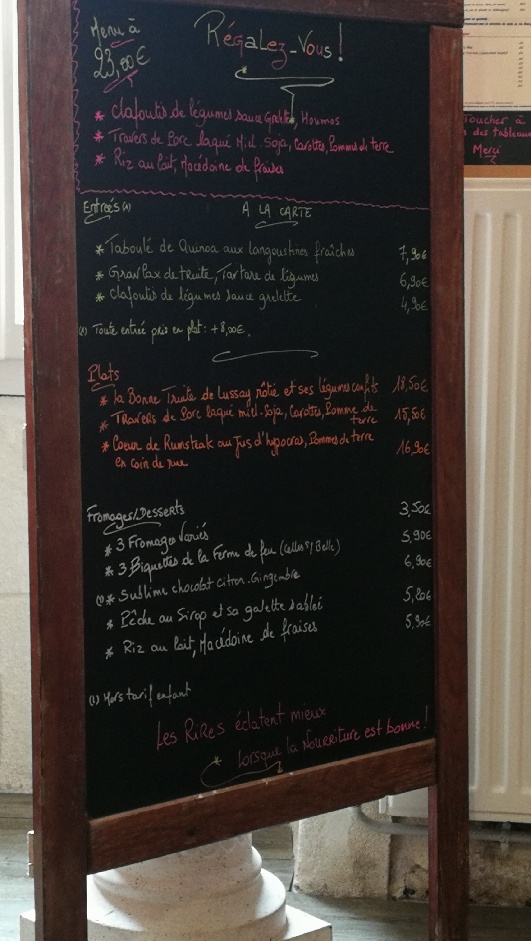 Menu à
23,00€
Régalez-Vous!
* Clafoutis de légumes sauce Grelette, Houmos
* Travers de Porc laqué Miel-Soja, Carottes, Pommes de terre
* Riz au lait, Macédoine de fraises
Entrées (1)
A LA CARTE
* Taboulé de Quinoa aux langoustines fraîches 7,90€
* Gravlax de truite, Tartare de légumes 6,90€
* Clafoutis de légumes sauce grelette 4,90€
(1) Toute entrée pris en plat: +8,00€.
Plats
* La Bonne Truite de Lussay rôtie et ses légumes confits 18,50€
* Travers de Porc laqué miel-Soja, Carottes, Pomme de terre 15,50€
* Coeur de Rumsteak au jus d'hypocras, Pommes de terre 16,90€
en coin de rue
Fromages/Desserts
* 3 Fromages Variés 3,50€
* 3 Biquettes de la Ferme de feu (Celles s/ Belle) 5,90€
(1)* Sublime chocolat Citron-Gingembre 6,90€
* Pêche au Sirop et sa galette sablée 5,20€
* Riz au lait, Macédoine de fraises 5,90€
(1) Hors tarif enfant
Les Rires éclatent mieux
* lorsque la Nourriture est bonne!
Toucher à
des tableaux
Merci